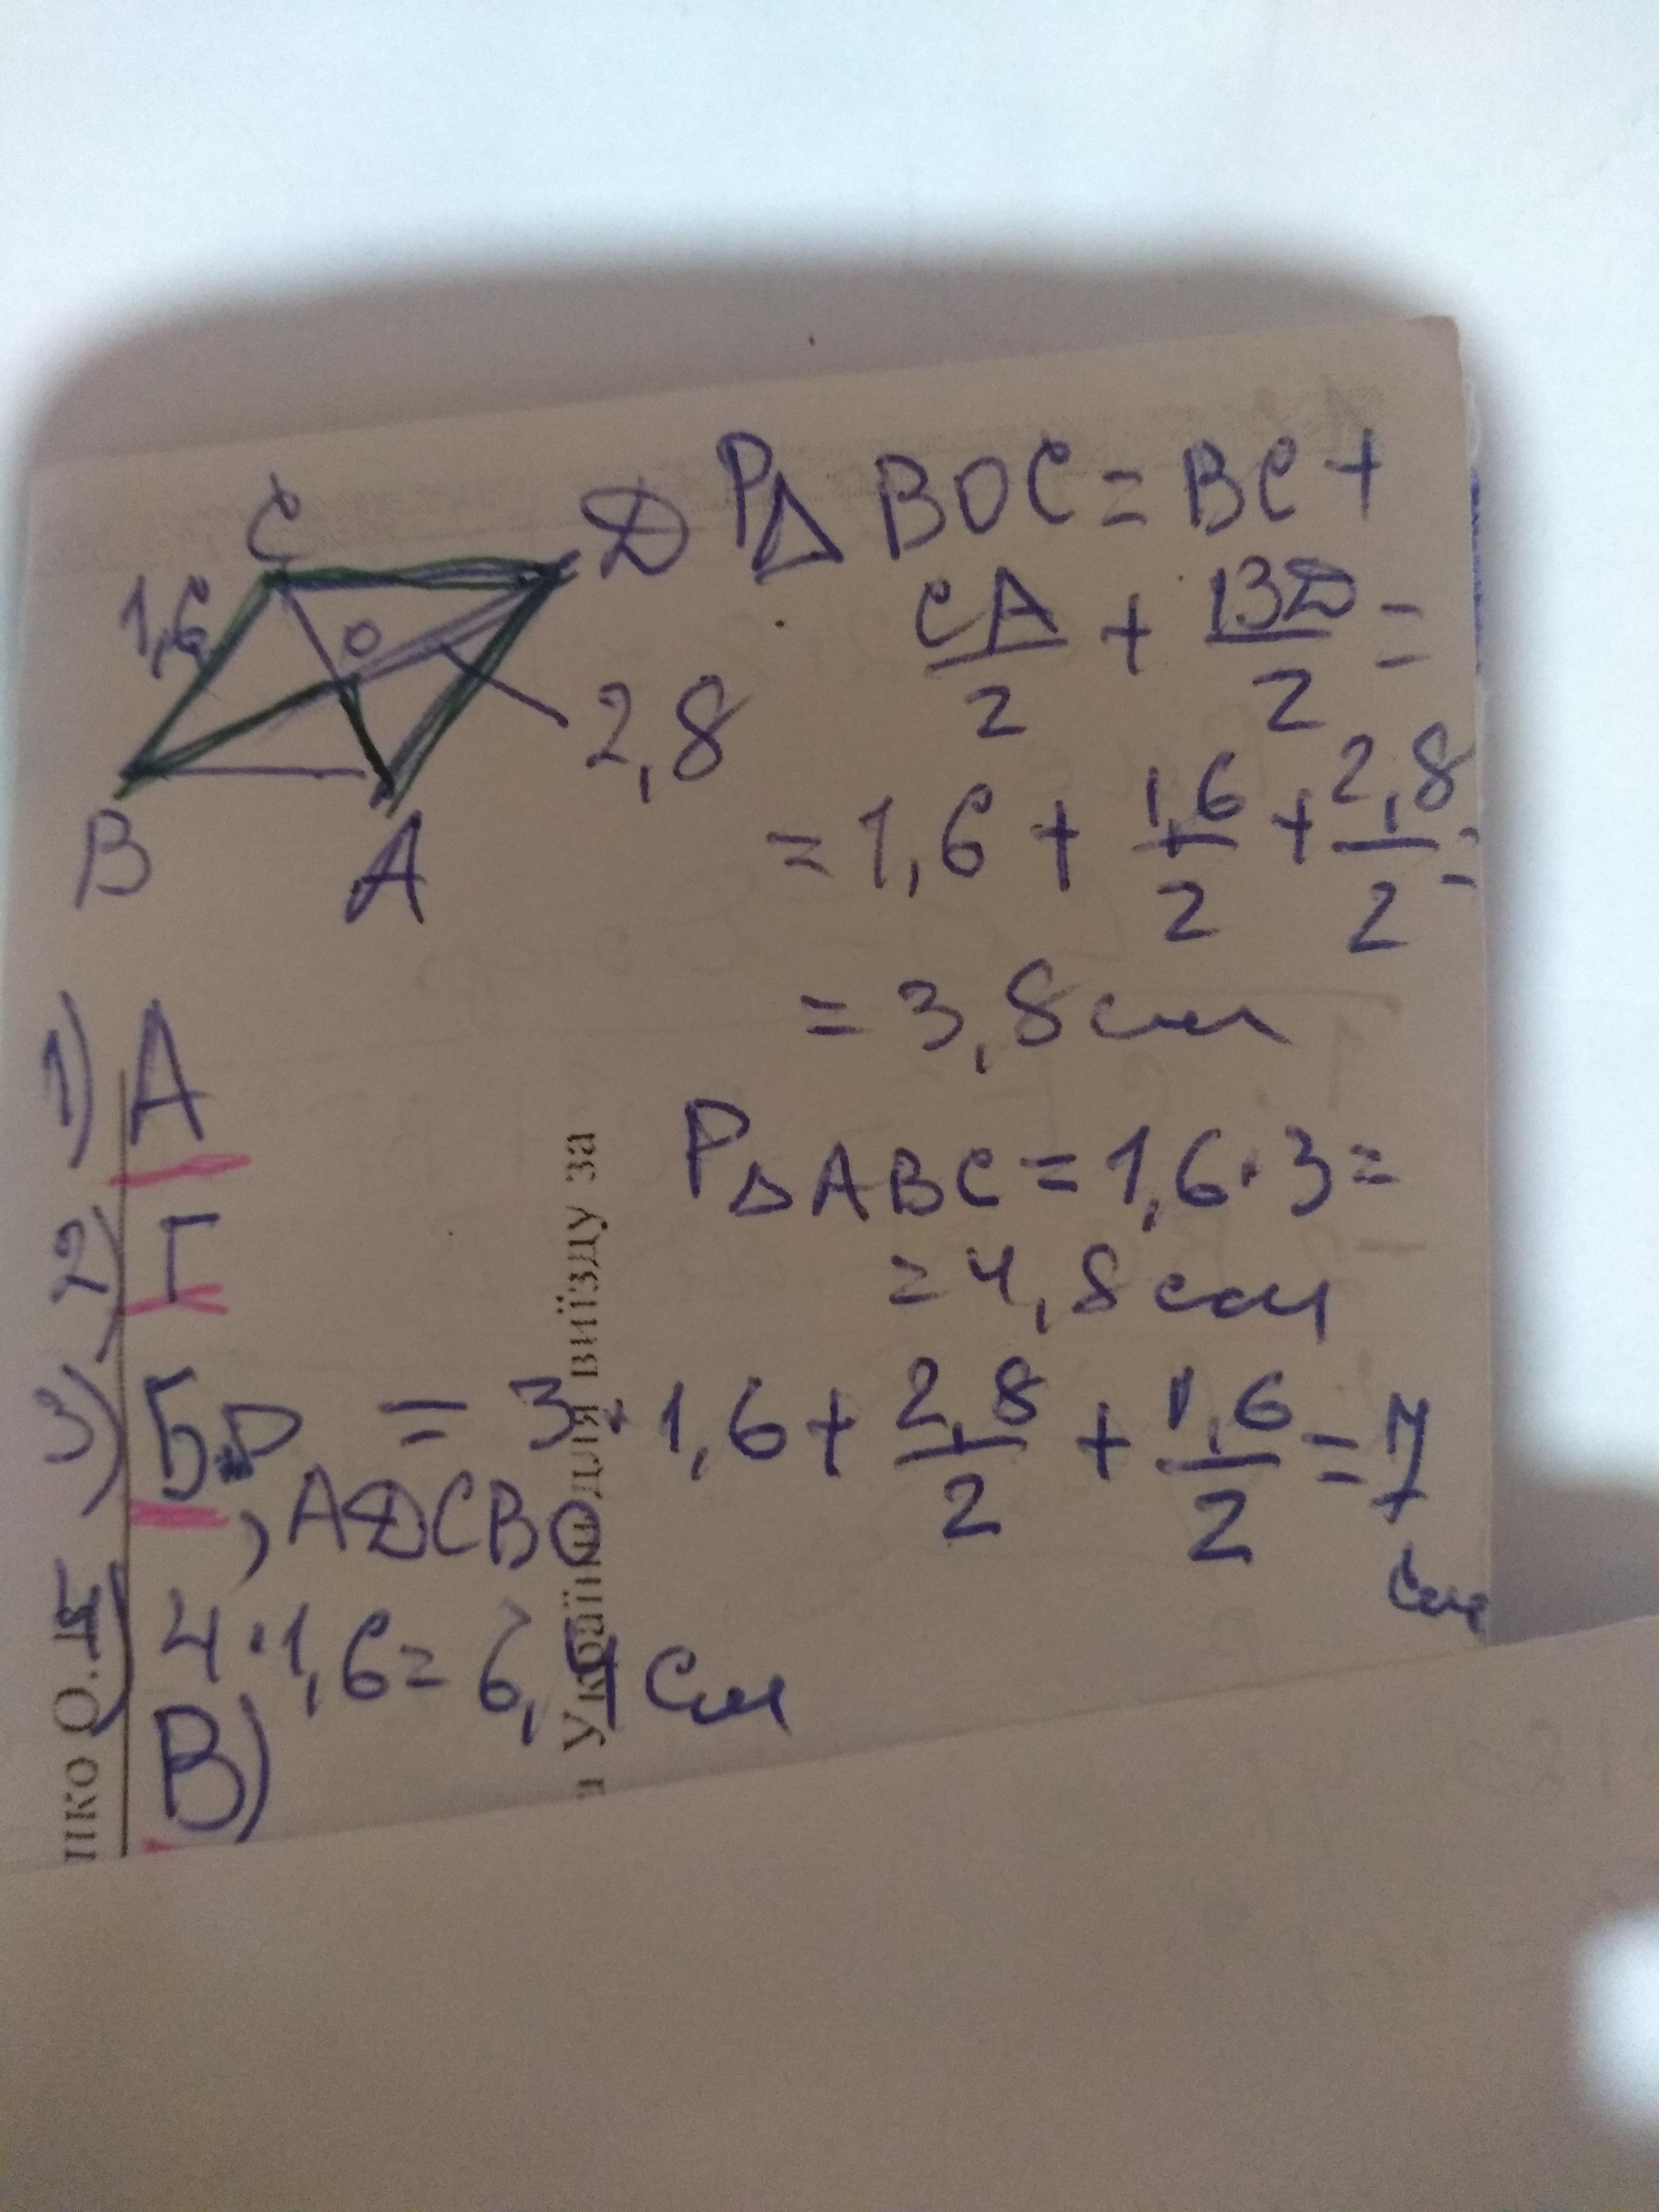 C
D
1,6
O
2,8
B
A
P△ BOC = BC +
CA/2 + BD/2 =
= 1,6 + 1,6/2 + 2,8/2 =
= 3,8 см
P△ABC = 1,6 · 3 =
= 4,8 см
1) А
2) Г
3) Б. P ADCBO = 3 · 1,6 + 2,8/2 + 1,6/2 = 7 см
4) 4 · 1,6 = 6,4 см
В)
нко О.
для виїзду за